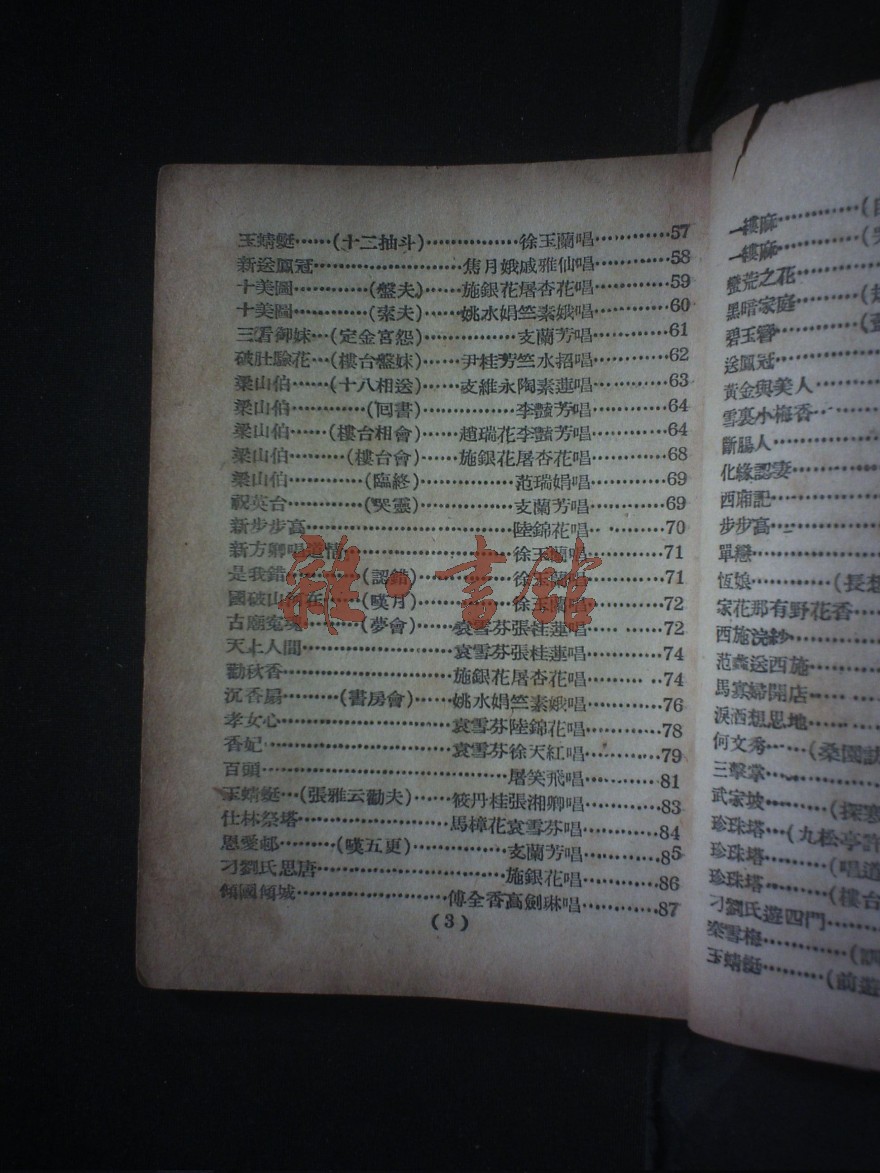 玉蜻蜓……(十三抽斗)……………徐玉蘭唱…………57
新送鳳冠……………………焦月娥戚雅仙唱…………58
十美圖…………(盤夫)……施銀花屠杏花唱…………59
十美圖…………(索夫)……姚水娟竺素娥唱…………60
三看御妹……(定金宮怨)……………支蘭芳唱…………61
破肚驗花……(樓台盤妹)……尹桂芳竺水招唱…………62
梁山伯……(十八相送)……支維永陶素蓮唱…………63
梁山伯…………(回書)……………李豔芳唱…………64
梁山伯……(樓台相會)……趙瑞花李豔芳唱…………64
梁山伯…………(樓台會)……施銀花屠杏花唱…………68
梁山伯…………(臨終)……………范瑞娟唱…………69
祝英台…………(哭靈)……………支蘭芳唱…………69
新步步高……………………陸錦花唱…………70
新方卿唱道情……………………徐玉蘭唱…………71
是我錯…………(認錯)……………徐玉蘭唱…………71
國破山河在……(嘆月)……………徐玉蘭唱…………72
古廟冤魂…………(夢會)……袁雪芬張桂蓮唱…………72
天上人間……………………袁雪芬張桂蓮唱…………74
勸秋香……………………施銀花屠杏花唱…………74
沉香扇…………(書房會)……姚水娟竺素娥唱…………76
孝女心……………………袁雪芬陸錦花唱…………78
香妃……………………袁雪芬徐天紅唱…………79
百頭……………………屠笑飛唱…………81
玉蜻蜓……(張雅云勸夫)……筱丹桂張湘卿唱…………83
仕林祭塔……………………馬樟花袁雪芬唱…………84
恩愛邨…………(嘆五更)……………支蘭芳唱…………85
刁劉氏思唐……………………施銀花唱…………86
傾國傾城……………………傅全香高劍琳唱…………87
(3)
一縷麻…………(
一縷麻…………(哭
蠻荒之花…………
黑暗家庭…………(
碧玉簪…………(
送鳳冠…………
黃金與美人…………
雪裏小梅香……
斷腸人…………
化緣認妻…………
西廂記…………
步步高…………
單戀…………
恆娘…………(長想
家花那有野花香……
西施浣紗…………
范蠡送西施…………
馬寡婦開店……
淚洒想思地…………
何文秀……(桑園訪
三擊掌…………
武家坡…………(探寒
珍珠塔……(九松亭許
珍珠塔…………(唱道
珍珠塔…………(樓台
刁劉氏遊四門……
秦雪梅…………(
玉蜻蜓…………(前遊
雜·書館